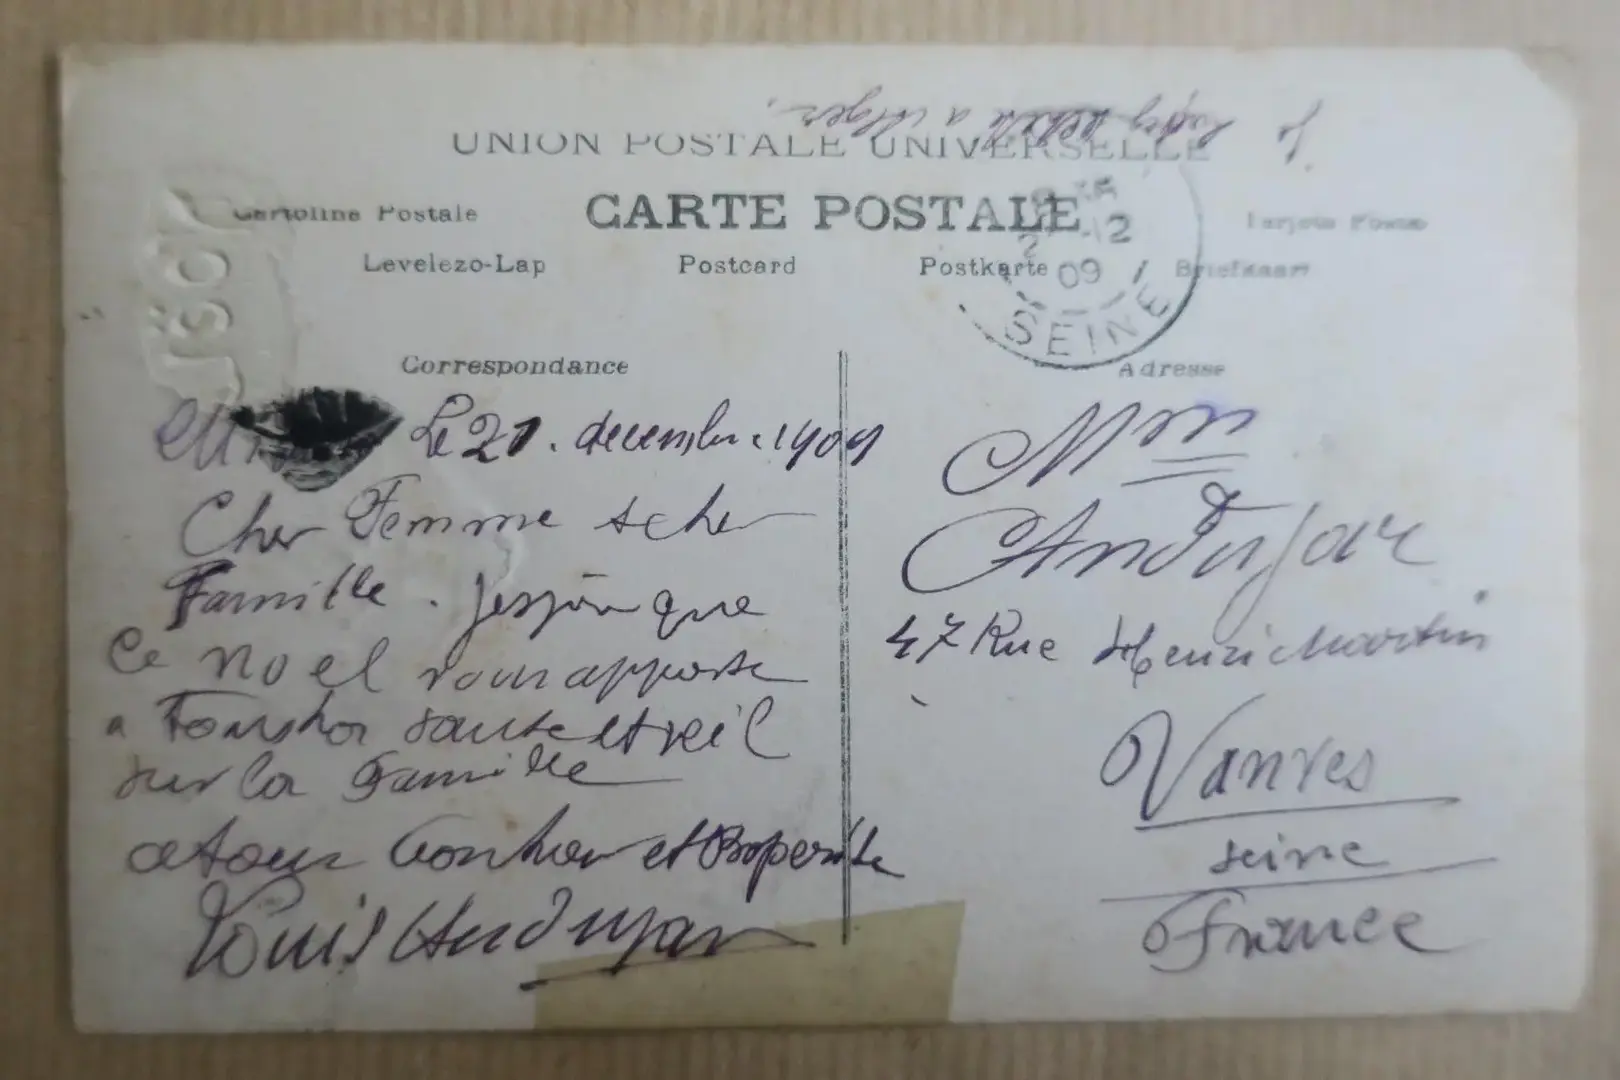 UNION POSTALE UNIVERSELLE
CARTE POSTALE
Cartoline Postale
Levelezo-Lap Postcard Postkarte Briefkaart
2 12
09
SEINE
Correspondance
Adresse
Le 21. decembre 1909
Cher Femme et cher
Famille. jespèr que
Ce noel vous apporte
a Tous sante et
sur la Famille
a tous et
Louis Andujar
Mme
Andujar
47 Rue Henri Martin
Vanves
seine
France